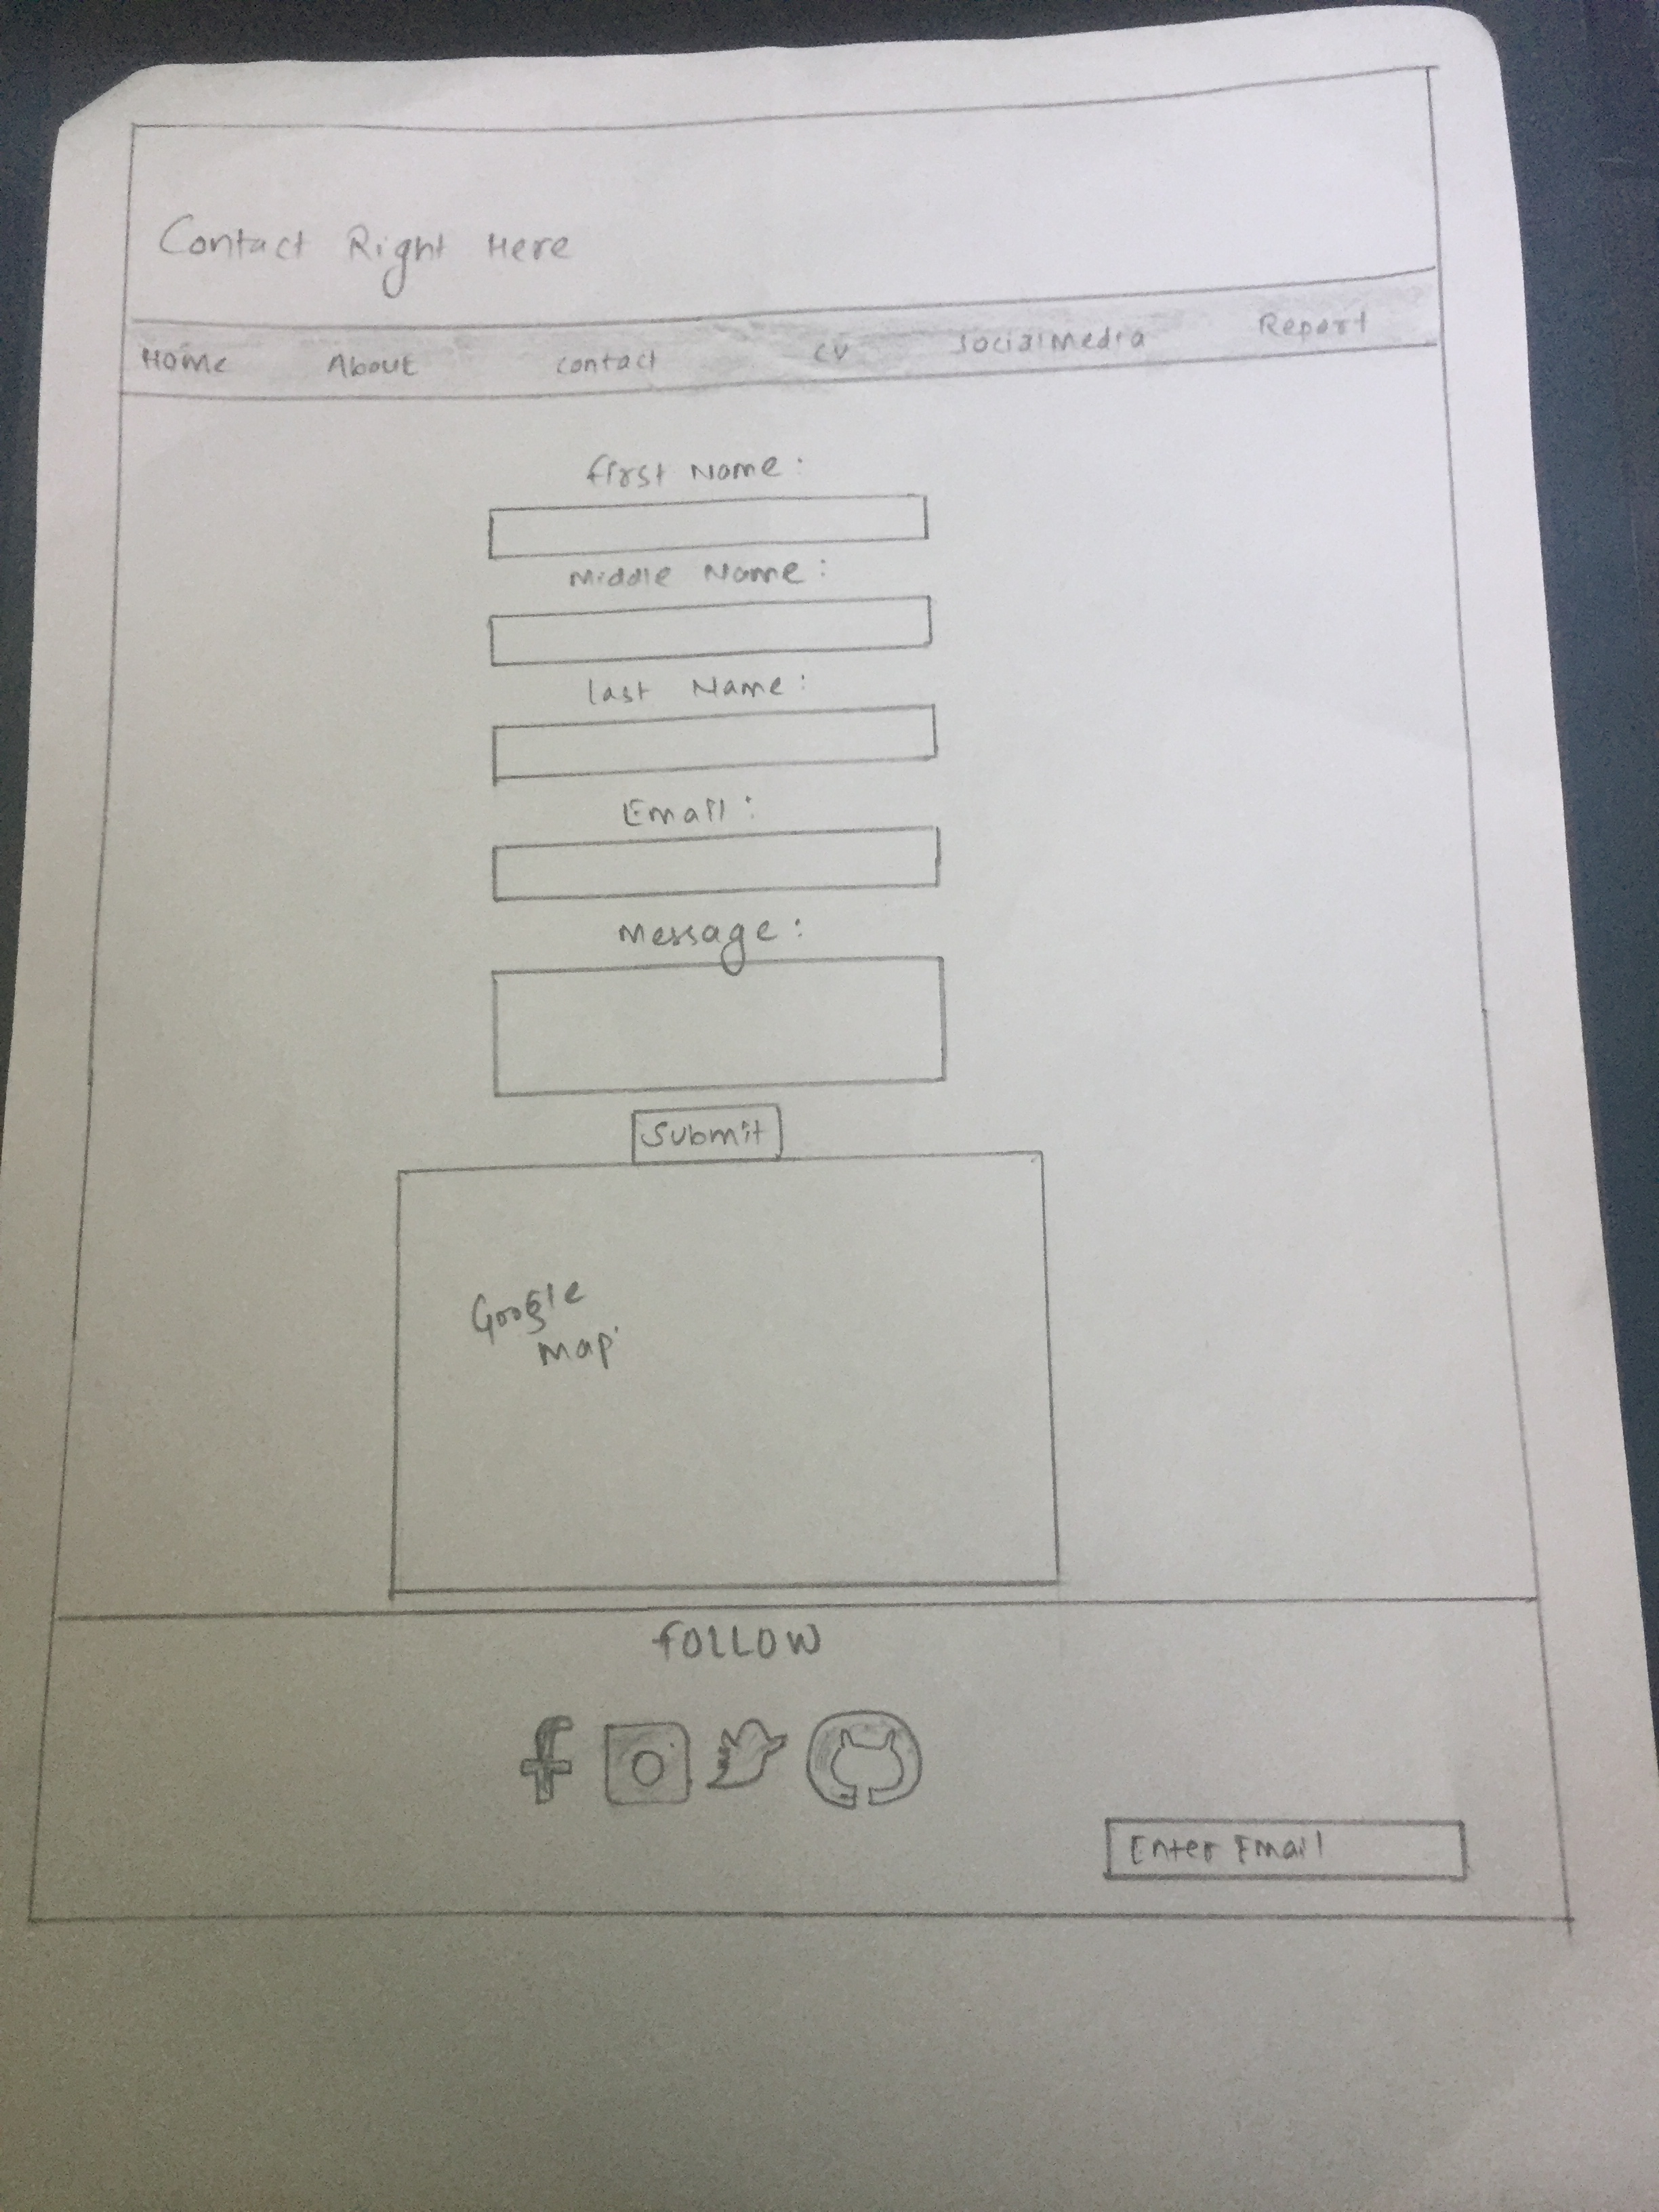 Contact Right Here
Home About contact CV socialmedia Report
first Name:
Middle Name:
last Name:
Email:
Message:
Submit
Google
map
FOLLOW
Enter Email